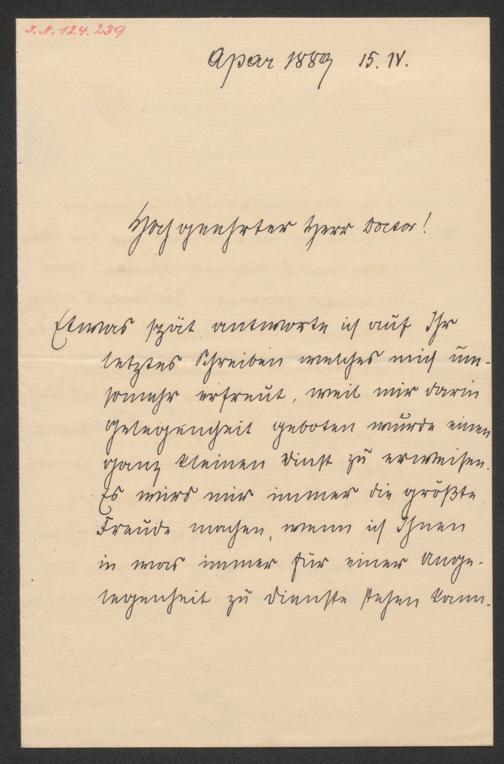 I.N. 124.239
Apar 1889 15. IV.
Hochgeehrter Herr Doctor!
Etwas spät antworte ich auf Ihr
letztes Schreiben welches mich um-
somehr erfreut, weil mir darin
Gelegenheit geboten wurde einen
ganz kleinen Dinst zu erweisen.
Es wirs mir immer die größte
Freude machen, wenn ich Ihnen
in was immer für einer Ange-
legenheit zu Dienste stehen kann.